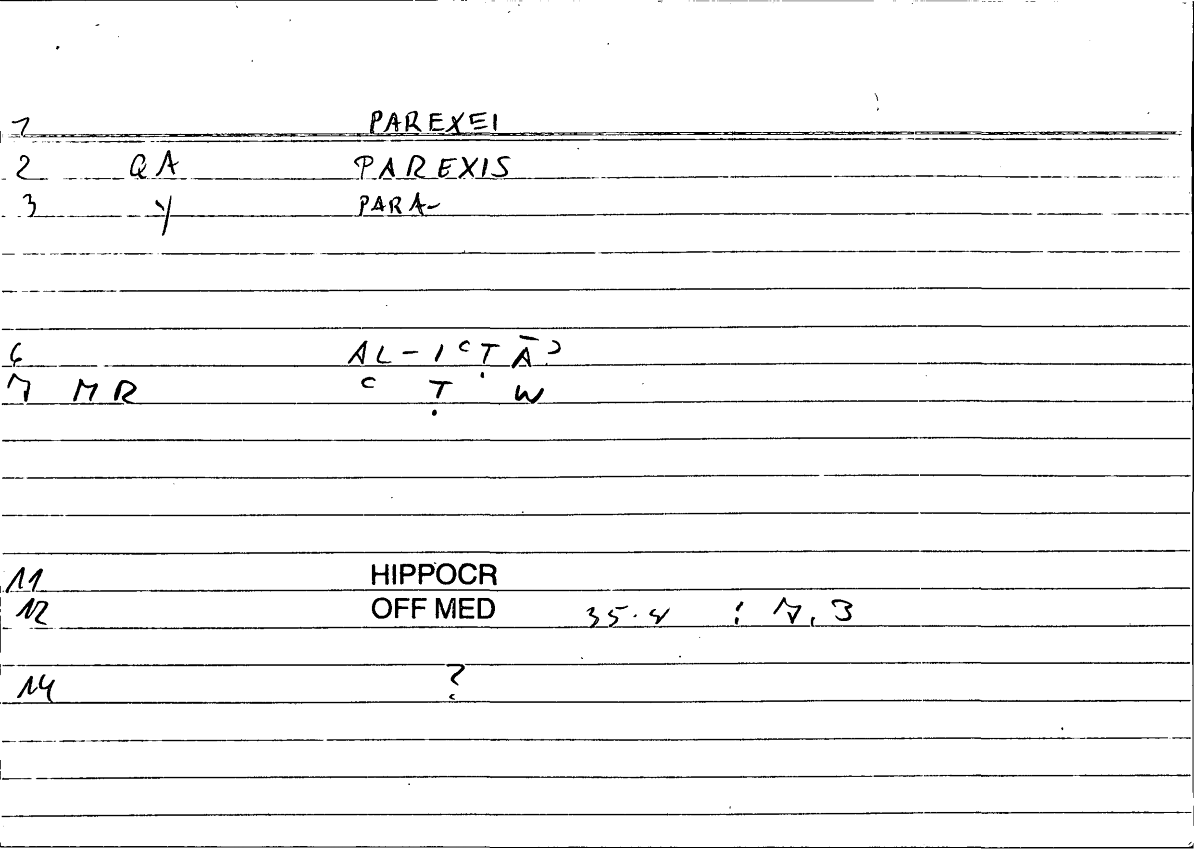 1 PAREXEI
2 QA PAREXIS
3 y PARA-
6 AL-IʿṬĀʾ
7 MR ʿ Ṭ W
11 HIPPOCR
12 OFF MED 35.4 : 7, 3
14 ?